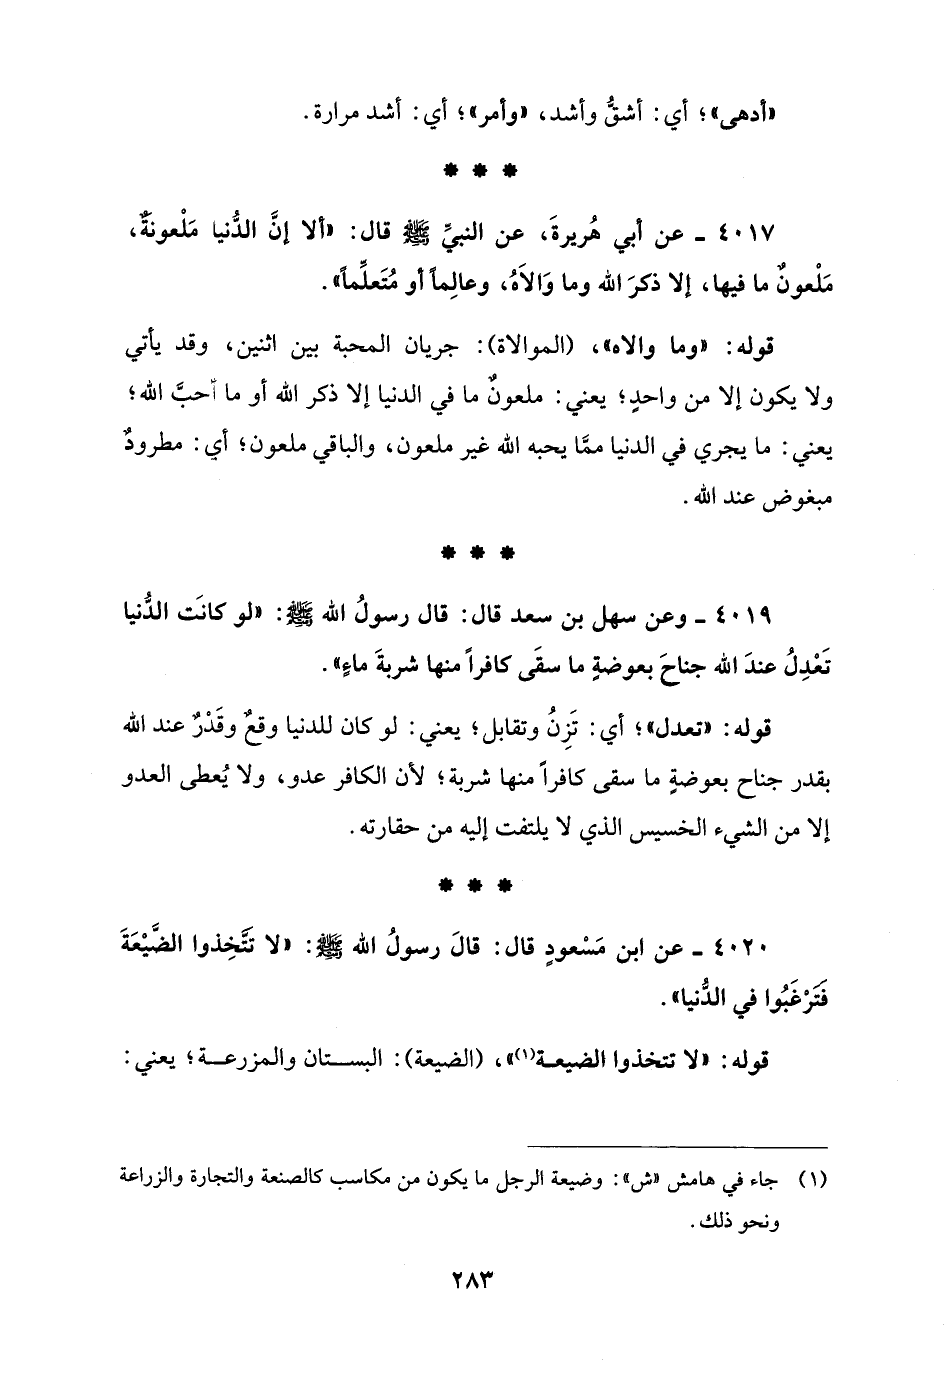 «أدهى»؛ أي: أشقُّ وأشد، «وأمر»؛ أي: أشد مرارة.
* * *
٤٠١٧ ـ عن أبي هُريرةَ، عن النبيِّ ﷺ قال: «ألا إنَّ الدُّنيا مَلْعونةٌ،
مَلْعونٌ ما فيها، إلا ذكرَ الله وما وَالاَهُ، وعالِماً أو مُتَعلِّماً».
قوله: «وما والاه»، (الموالاة): جريان المحبة بين اثنين، وقد يأتي
ولا يكون إلا من واحدٍ؛ يعني: ملعونٌ ما في الدنيا إلا ذكر الله أو ما أحبَّ الله؛
يعني: ما يجري في الدنيا ممَّا يحبه الله غير ملعون، والباقي ملعون؛ أي: مطرودٌ
مبغوض عند الله.
* * *
٤٠١٩ ـ وعن سهل بن سعد قال: قال رسولُ الله ﷺ: «لو كانَت الدُّنيا
تَعْدِلُ عندَ الله جناحَ بعوضةٍ ما سقَى كافراً منها شربةَ ماءٍ».
قوله: «تعدل»؛ أي: تَزِنُ وتقابل؛ يعني: لو كان للدنيا وقعٌ وقَدْرٌ عند الله
بقدر جناح بعوضةٍ ما سقى كافراً منها شربة؛ لأن الكافر عدو، ولا يُعطى العدو
إلا من الشيء الخسيس الذي لا يلتفت إليه من حقارته.
* * *
٤٠٢٠ ـ عن ابن مَسْعودٍ قال: قالَ رسولُ الله ﷺ: «لا تتَّخِذوا الضَّيْعَةَ
فتَرْغَبُوا في الدُّنيا».
قوله: «لا تتخذوا الضيعة(١)»، (الضيعة): البستان والمزرعة؛ يعني:
(١) جاء في هامش «ش»: وضيعة الرجل ما يكون من مكاسب كالصنعة والتجارة والزراعة
ونحو ذلك.
٢٨٣